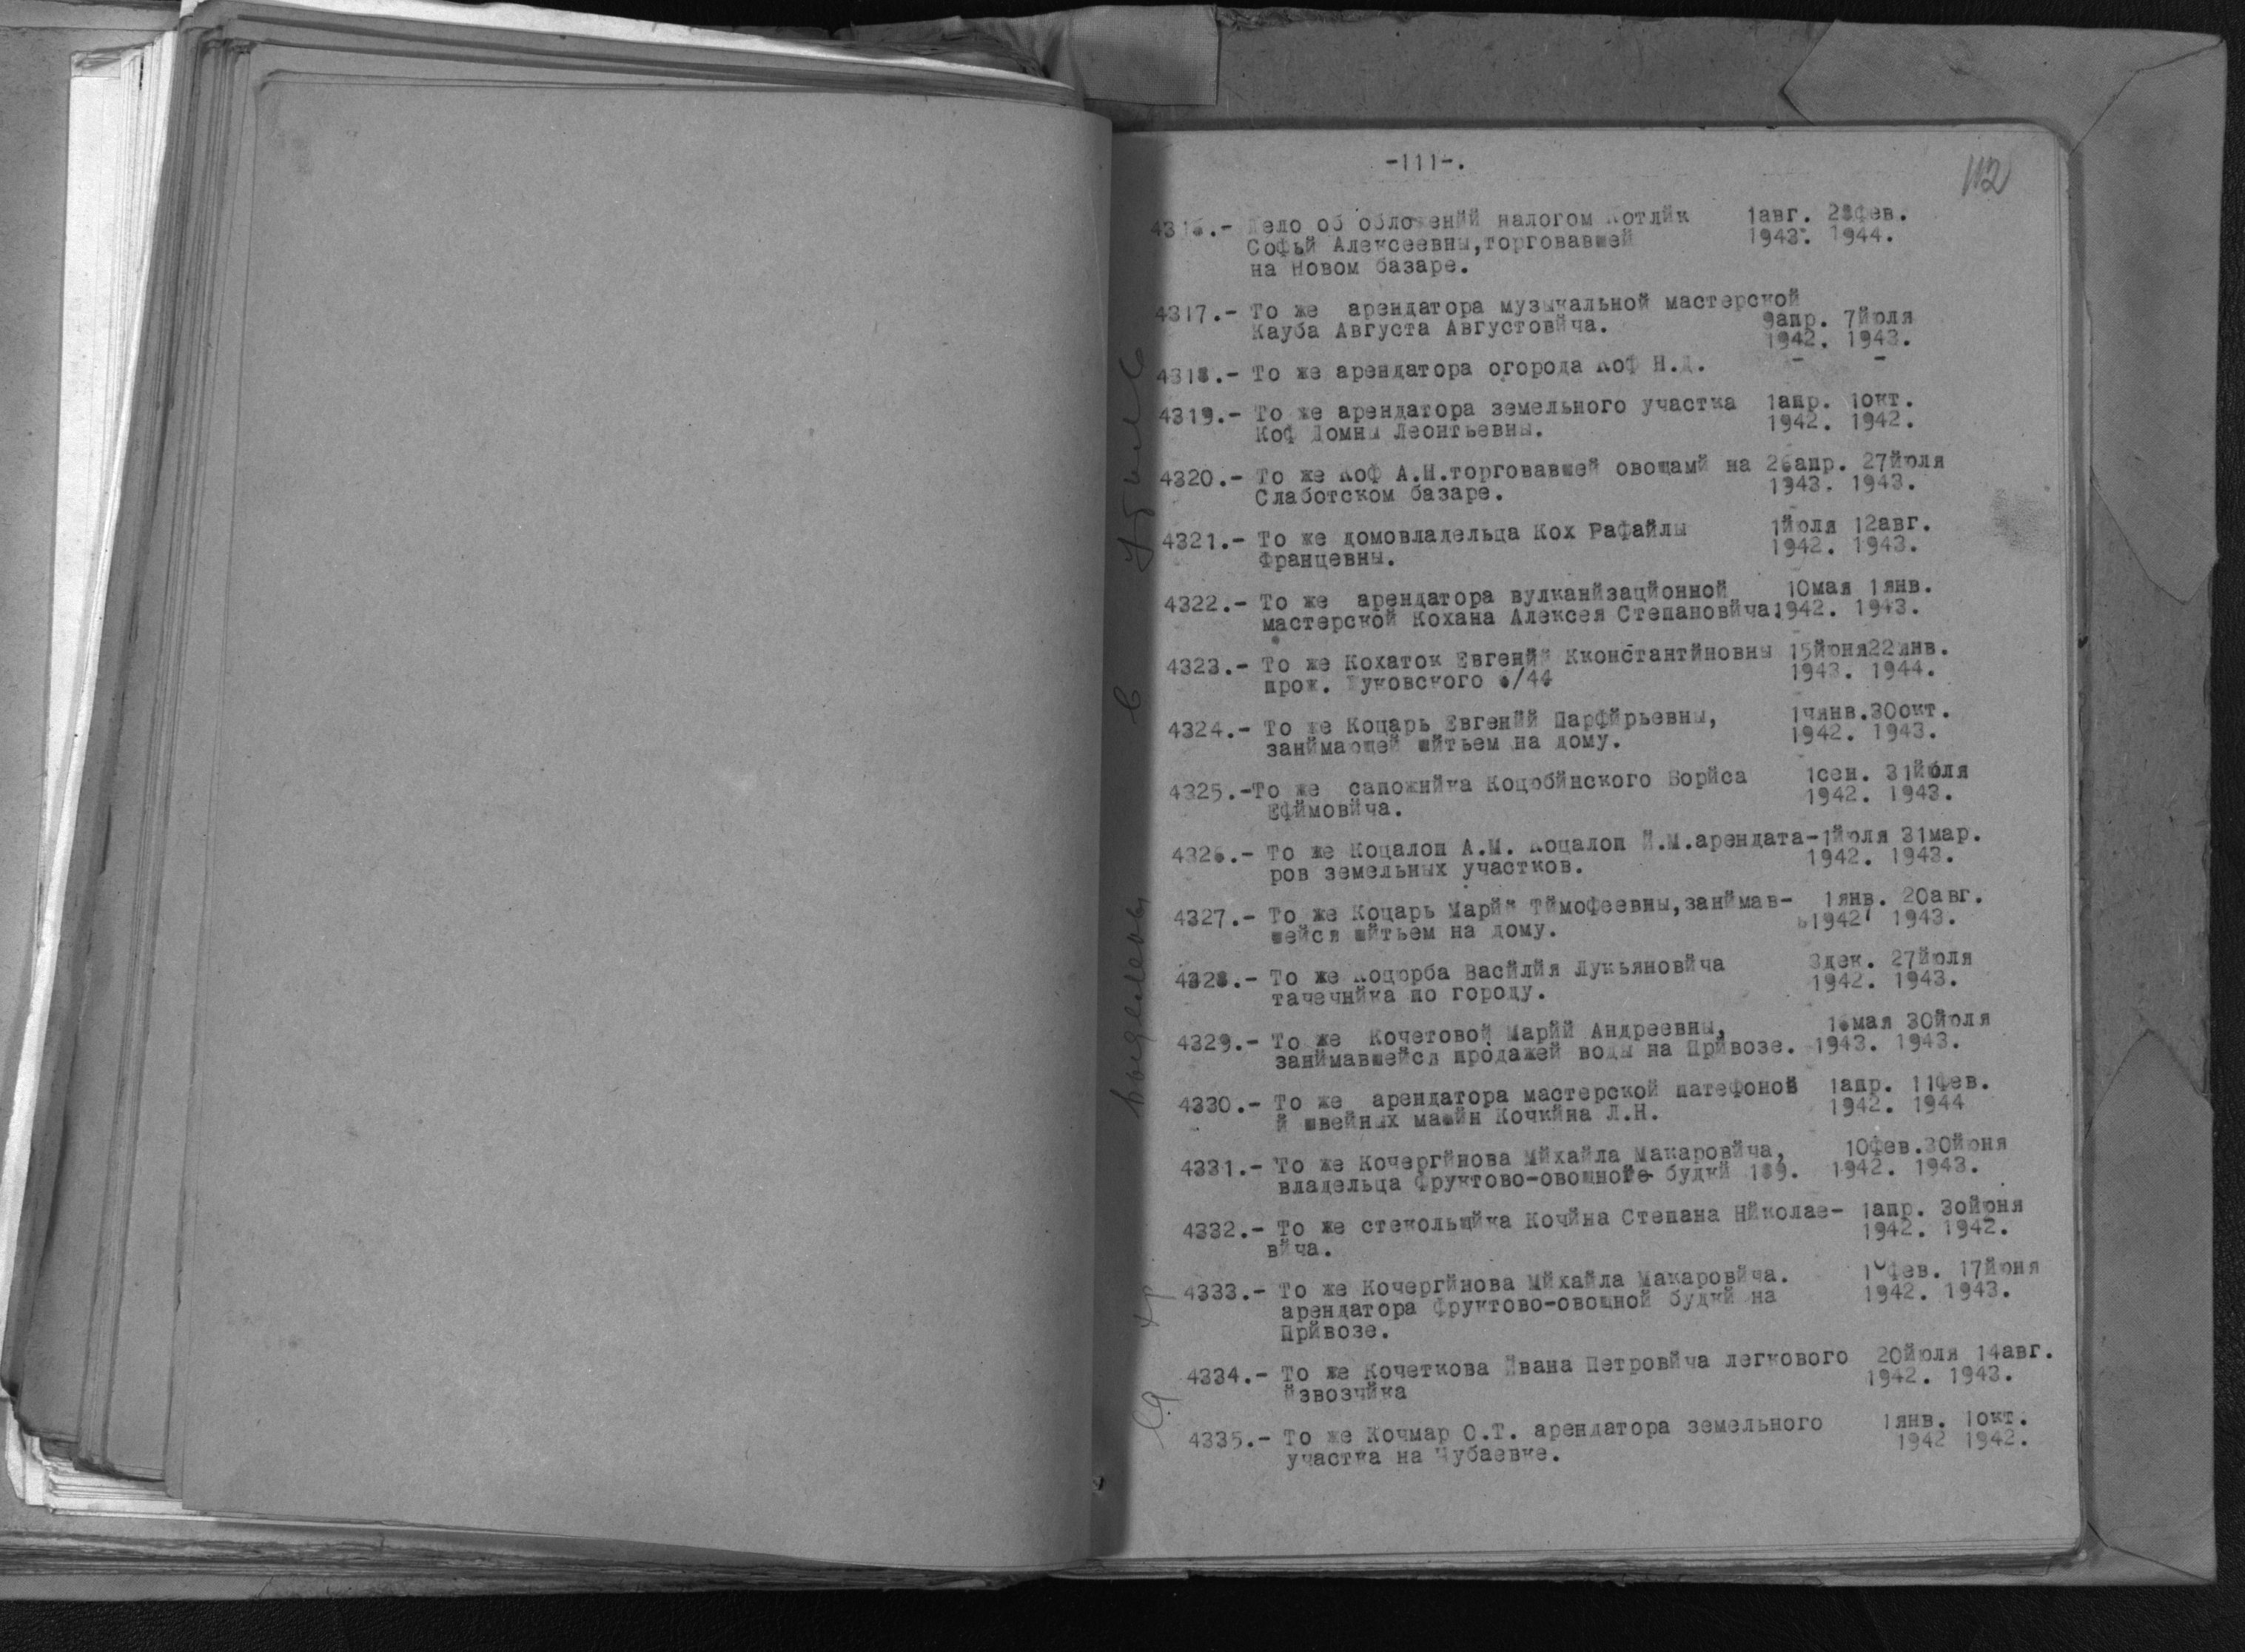 -111-.
112
4316.- Дело об обложенйй налогом Котлйк 1авг. 28фев.
Софьй Алексеевны,торговавшей 1943. 1944.
на Новом базаре.
4317.- То же арендатора музыкальной мастерской
Кауба Августа Августовйча. 9апр. 7йюля
1942. 1943.
4318.- То же арендатора огорода Коф Н.Д. - -
4319.- То же арендатора земельного участка 1апр. 1окт.
Коф Домны Леонтьевны. 1942. 1942.
4320.- То же Коф А.Н.торговавшей овощамй на 26апр. 27йюля
Слаботском базаре. 1943. 1943.
4321.- То же домовладельца Кох Рафайлы 1йюля 12авг.
Францевны. 1942. 1943.
4322.- То же арендатора вулканйзацйонной 10мая 1янв.
мастерской Кохана Алексея Степановйча.1942. 1943.
4323.- То же Кохаток Евгенйй Кконстантйновны 15йюня22янв.
прож. Жуковского /44 1943. 1944.
4324.- То же Коцарь Евгенйй Парфйрьевны, 1янв.30окт.
занймающей шйтьем на дому. 1942. 1943.
4325.-То же сапожнйка Коцюбйнского Борйса 1сен. 31йюля
Ефймовйча. 1942. 1943.
4326.- То же Коцалоп А.М. Коцалоп Й.М.арендата-1йюля 31мар.
ров земельных участков. 1942. 1943.
4327.- То же Коцарь Марйй Тймофеевны,занймав- 1янв. 20авг.
шейся шйтьем на дому. 1942 1943.
4328.- То же Коцюрба Васйлйя Лукьяновйча 3дек. 27йюля
тачечнйка по городу. 1942. 1943.
4329.- То же Кочетовой Марйй Андреевны, 16мая 30йюля
занймавшейся продажей воды на Прйвозе. 1943. 1943.
4330.- То же арендатора мастерской патефонов 1апр. 11фев.
й швейных машйн Кочкйна Л.Н. 1942. 1944
4331.- То же Кочергйнова Мйхайла Макаровйча, 10фев.30йюня
владельца фруктово-овощной будкй 139. 1942. 1943.
4332.- То же стекольщйка Кочйна Степана Нйколае- 1апр. 30йюня
вйча. 1942. 1942.
4333.- То же Кочергйнова Мйхайла Макаровйча. 10фев. 17йюня
арендатора фруктово-овощной будкй на 1942. 1943.
Прйвозе.
4334.- То же Кочеткова Йвана Петровйча легкового 20йюля 14авг.
йзвозчйка 1942. 1943.
4335.- То же Кочмар О.Т. арендатора земельного 1янв. 1окт.
участка на Чубаевке. 1942 1942.